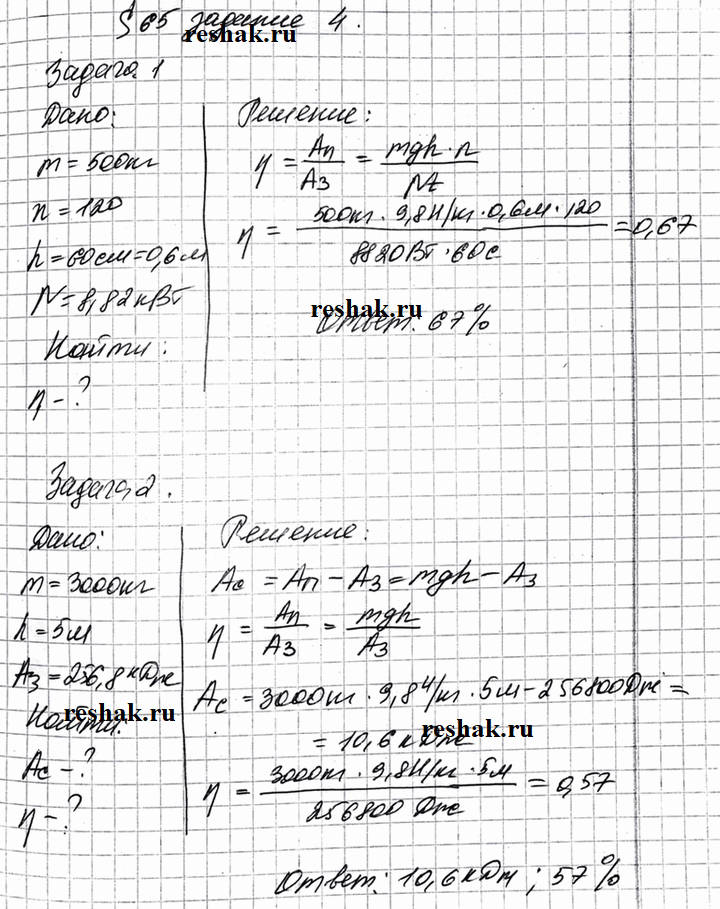 § 65 задание 4.
reshak.ru
Задача 1
Дано:
m = 500кг
n = 120
h = 60см = 0,6м
N = 8,82кВт
Найти:
η - ?
Решение:
η = Aп/Aз = mgh·n/Nt
η = 500кг · 9,8Н/кг · 0,6м · 120 / 8820Вт · 60с = 0,67
reshak.ru
Ответ: 67%
Задача 2.
Дано:
m = 3000кг
h = 5м
Aз = 256,8кДж
Найти:
reshak.ru
Ac - ?
η - ?
Решение:
Ac = Aп - Aз = mgh - Aз
η = Aп/Aз = mgh/Aз
Ac = 3000кг · 9,8Н/кг · 5м - 256800Дж =
reshak.ru
= 10,6кДж
η = 3000кг · 9,8Н/кг · 5м / 256800 Дж = 0,57
Ответ: 10,6кДж; 57%